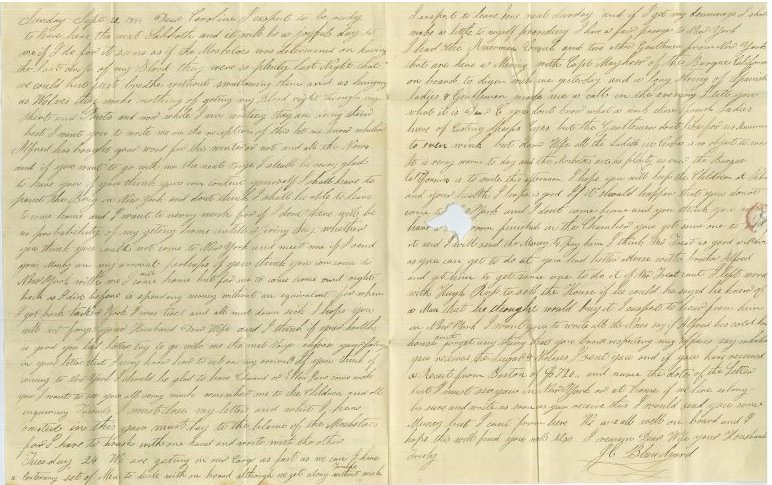 Sunday Sept 22 Dear Caroline I expect to be ready
to leave here the next Sabbath and it will be a joyfull day to
me if I do for it seems as if the Musketoes was determined on having
the last drop of my Blood they were so plenty last Night that
we could but just breathe without swallowing them and as hungry
as Wolves they make nothing of getting my Blood right through my
Shirt and Pants and now while I am writing they are very thick
best I want you to write me on the reception of this let me know whether
Alfred has bought your wood for this winter or not and all the News
and if you want to go with me the next Voyge I shall be very glad
to have you if you think you can content yourself I shall have to
paint the Barq in New York and dont think I shall be able to have
to come home and I want to very much for if I dont there will be
no probability of my geting home until every day whether
you think you could not come to New York and meet me if I send
you Money on my arrival if you think you can come to
New York with me I will come home but for me to come home and right
back as I did before is spending money without an equivalent for when
I got back to New York I was tired and all most down sick I hope you
will not forget your Husband Dear Wife and I think if your health
is good you had better try to go with me the next Voyge express your feelings
in your letter that I may know how to act on my arrival if you think of
coming to New York I should be glad to have Edward or Ellen Jane come with
you I want to see you all very much remember me to the Children and all
enquiring friends I must close my letter and what of
on this you must lay to the blame of the Musketoes
for I have to brush with one hand and write with the other
Tuesday 24 We are getting in our Cargo as fast as we can I have
a contrary set of Men to deal with on board although we get along without much trouble
I expect to leave here next Sunday and if I get my demurrage I shall
make a little to myself providing I have a fair passage to New York
I had the American Consul and two other Gentlemen from New York
that are here a Mining with Capt Mayhew of the Barque California
on board to dine with me yesterday and a long string of Spanish
Ladies & Gentlemen made me a call in the evening I tell you
what it is Dear you dont know what a these Spanish Ladies
have of casting Sheeps Eyes but the Gentlemen dont like for an American
to even wink but dear Wife all the Ladies in Cuba is no object to me
It is very warm to day and the Musketoes are as plenty as ever the Barque
California is to sail this afternoon I hope you will keep the Children at School
and your health I hope is good If it should happen that you do not
come York and I dont come home and you think you
have room finished in the Chamber you get some one to
it and I will send the Money to pay him I think is as good a Man
as you can get to do it you had better advise with brother Alfred
and get him to get some one to do it if cant I left word
with Hugh Ross to sell the House if he could he said he knew of
a Man that he thought would buy it I expect to hear from him
in New York I want you to write all the News say if Alfred has sold his
house forget any thing that you heard respecting my affairs say whether
you received the Sugar & Molases I sent you and if you have received
a Receit from Boston of $120. and name the date of the Letter
but I must see you in New York or at home if we live along
be sure and write as soon as you receive this I would send you some
Money but I cant from here We are all well on board and I
hope this will find you all Also I remain Dear Wife your Husband
Truly